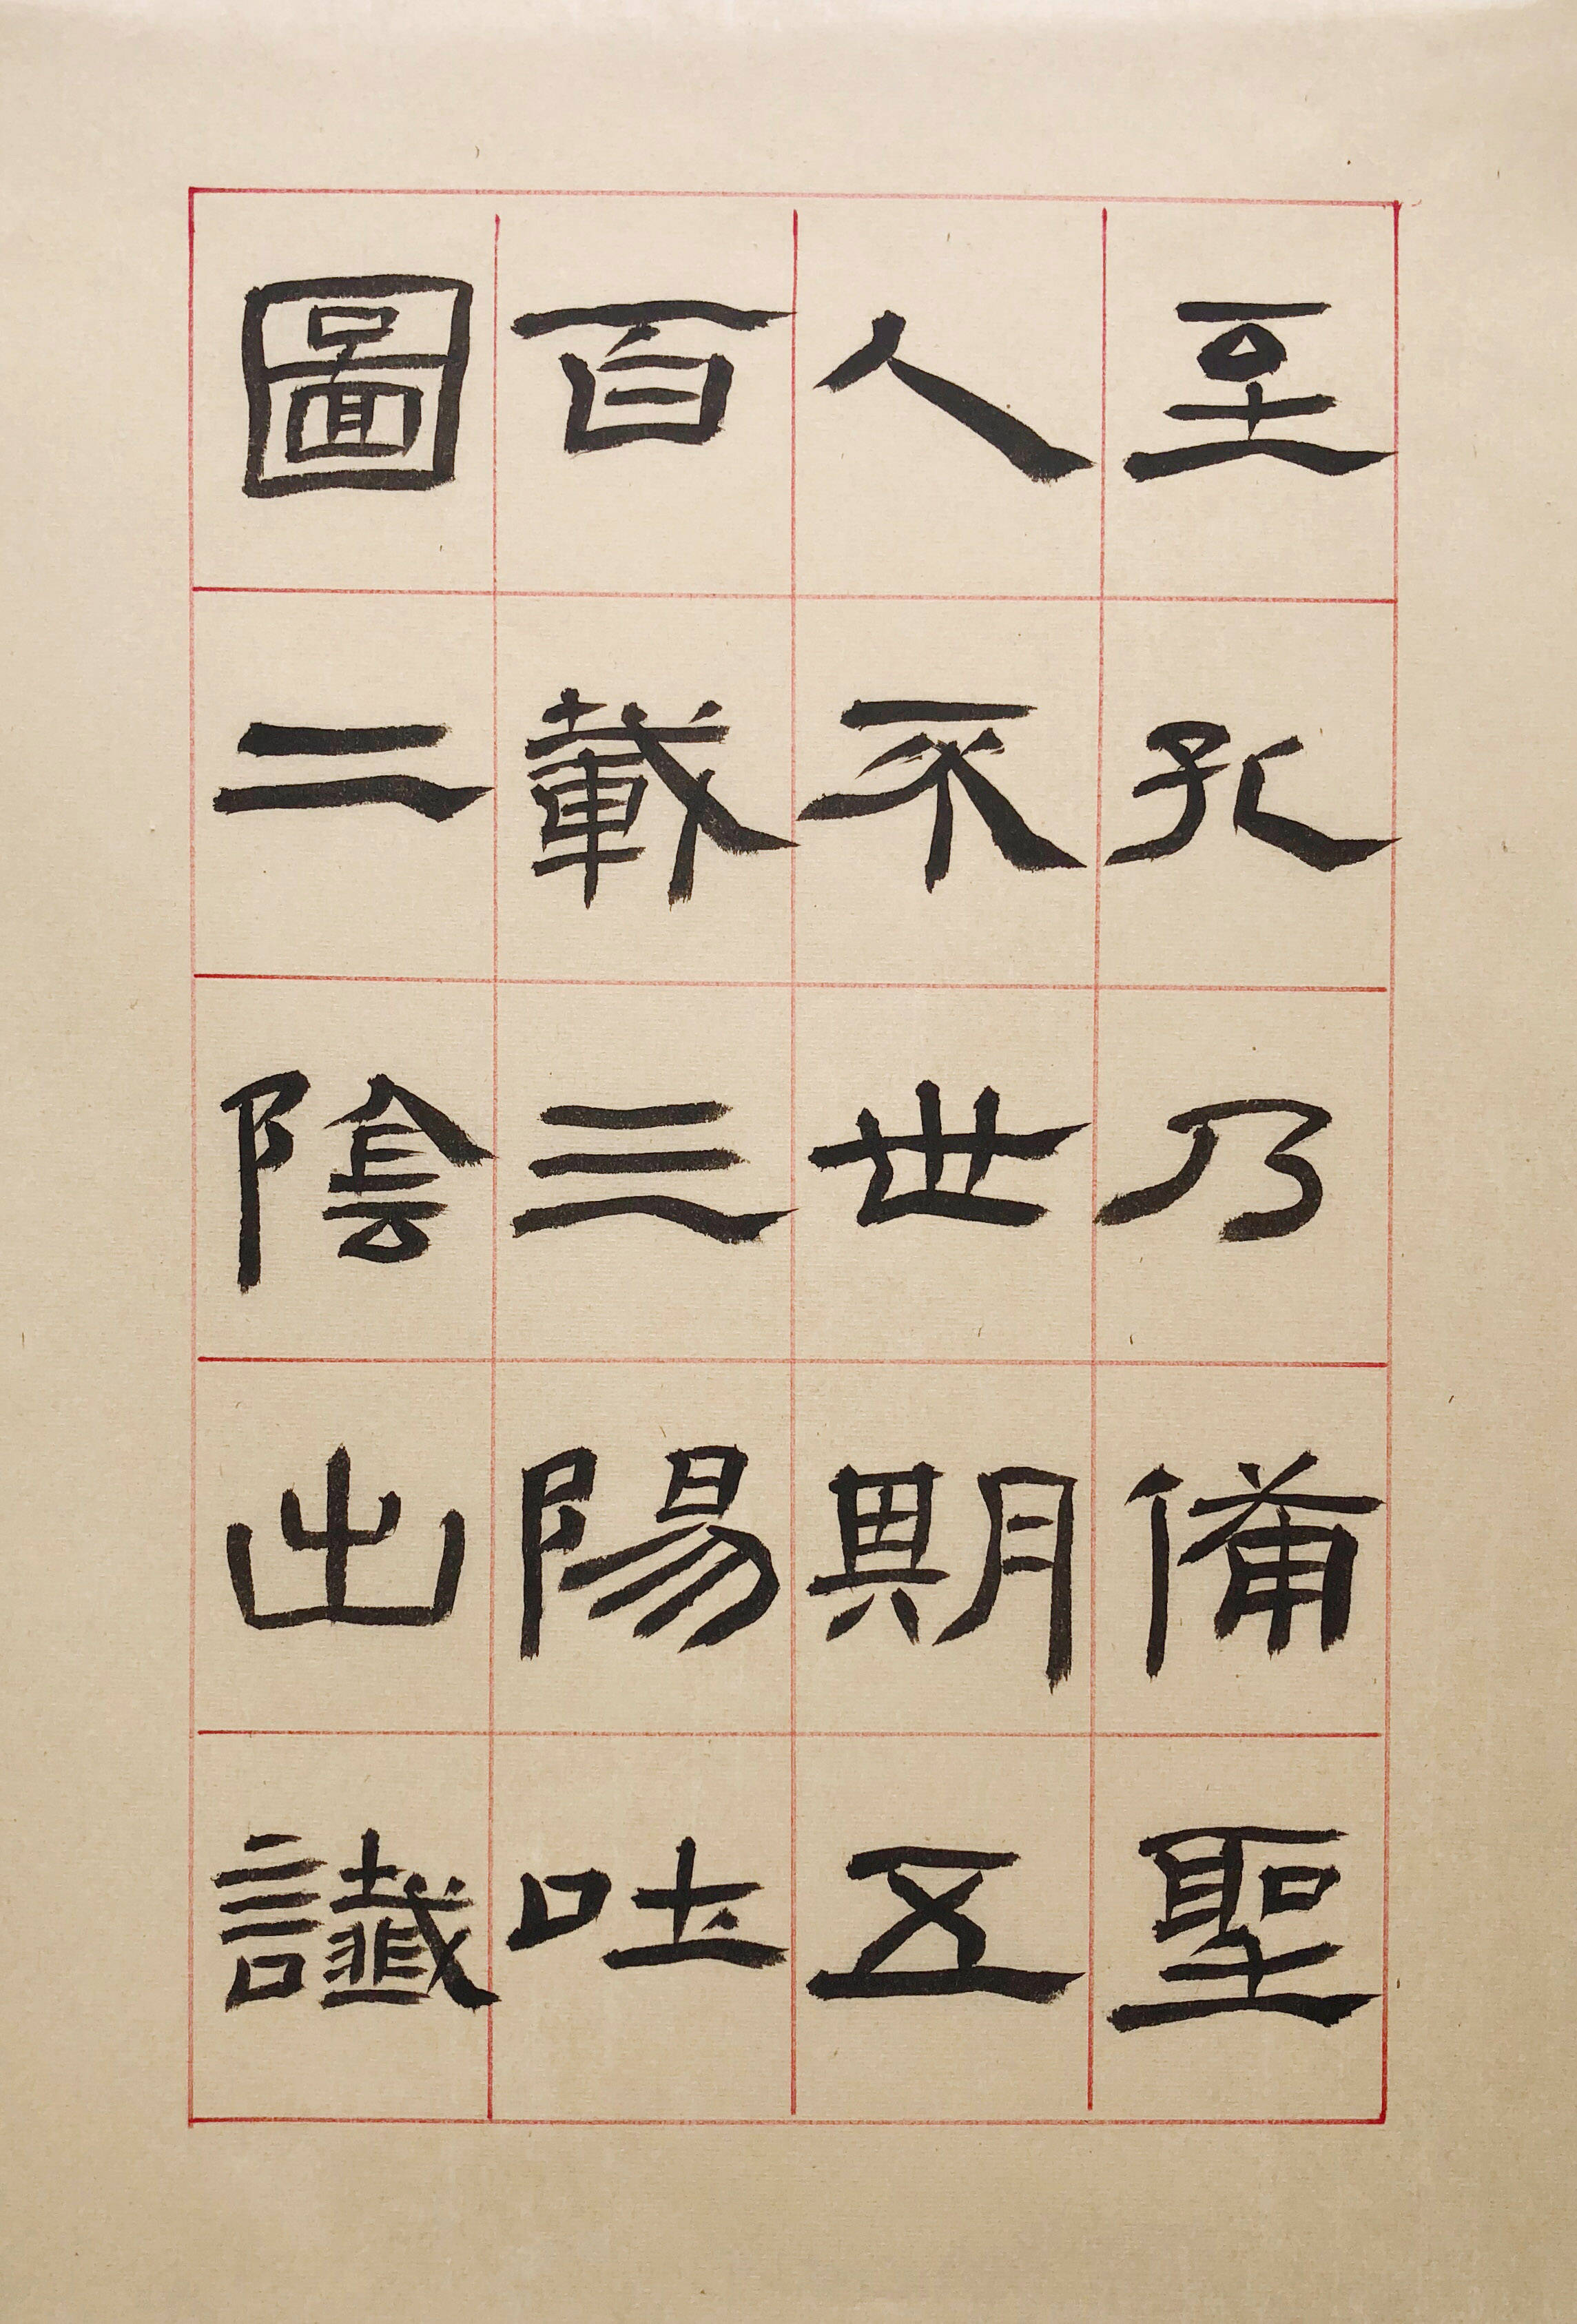 至孔乃備聖
人不世期五
百載三陽吐
圖二陰出讖